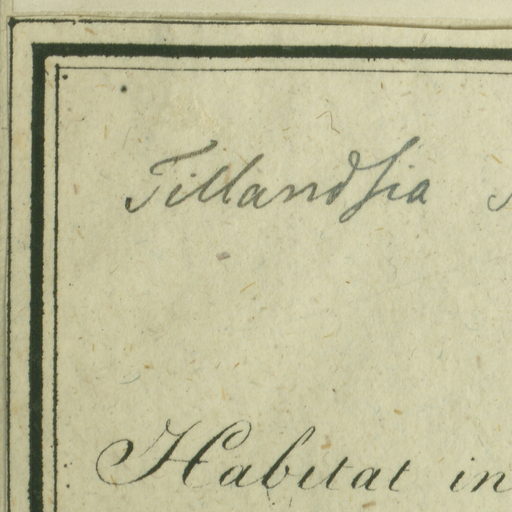 Tillandsia
Habitat in